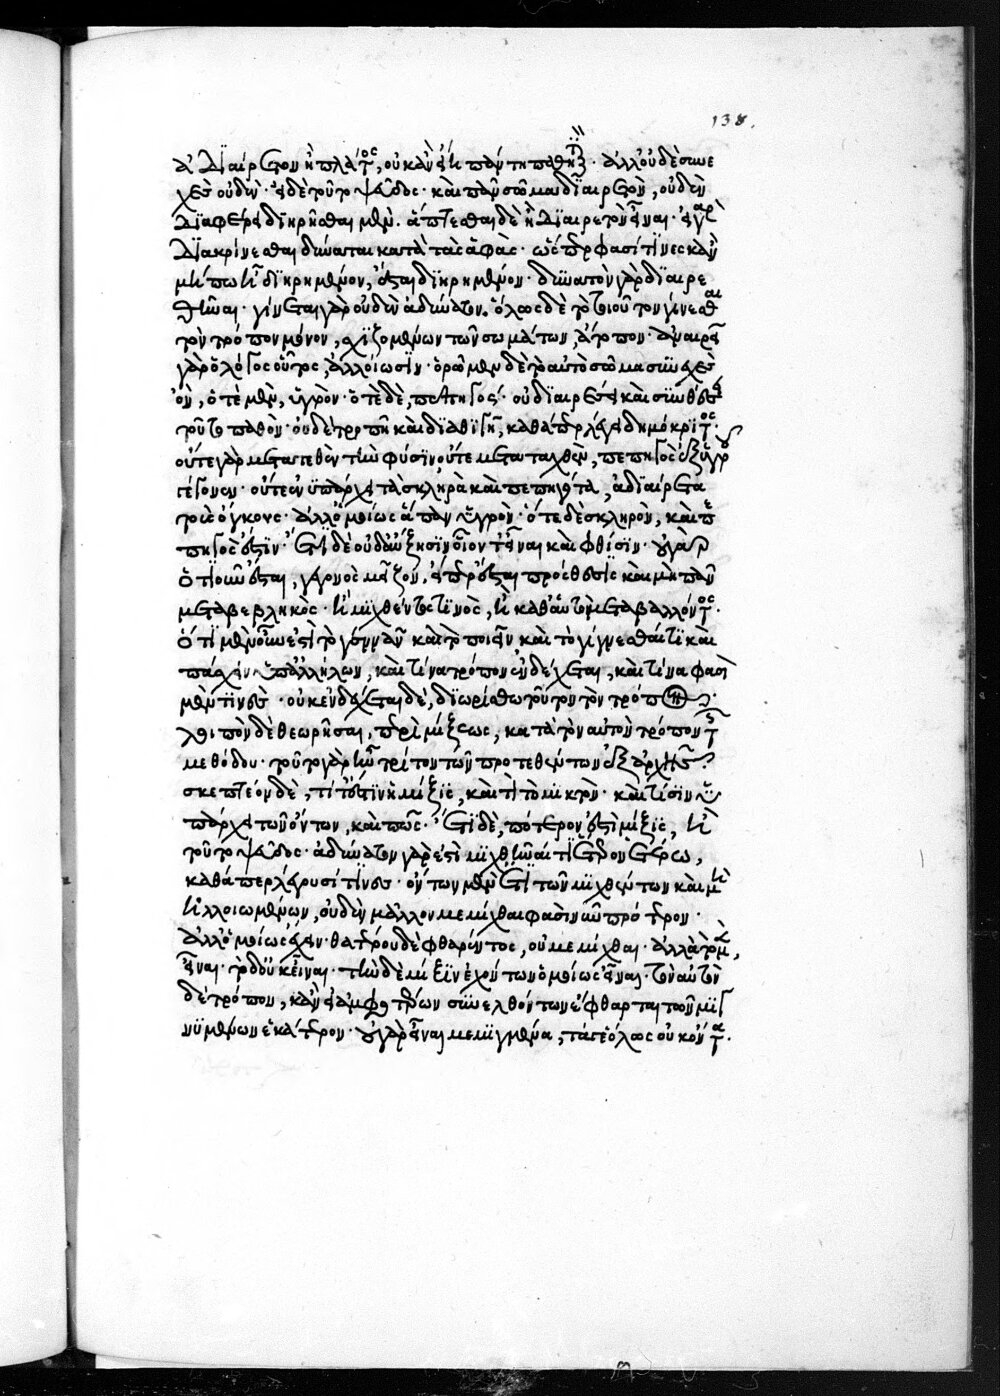 ἀδιαίρετον ἢ πλάτος, οὐκ ἂν εἴη πάντη παθητ. ἀλλ' οὐδὲ συνε
χὲς οὐδέν· εἰ δὲ τοῦτο ψεῦδος· καὶ πᾶν σῶμα διαιρετὸν, οὐδὲν
διαφέρει διῃρῆσθαι μὲν. ἅπτεσθαι δὲ ἢ διαιρετὸν εἶναι· εἰ γὰρ
διακρίνεσθαι δύναται κατὰ τὰς ἁφὰς· ὥσπερ φασί τινες κἂν
μήπω ᾖ διῃρημένον, ἔσται διῃρημένον· δυνατὸν γὰρ διαιρε
θῆναι· γίνεται γὰρ οὐδὲν ἀδύνατον. ὅλως δὲ τὸ τοῦτον γίνεσθαι
τὸν τρόπον μόνον, σχιζομένων τῶν σωμάτων, ἄτοπον· ἀναιρεῖ
γὰρ ὁ λόγος οὗτος, ἀλλοίωσιν· ὁρῶμεν δὲ τὸ αὐτὸ σῶμα συνεχὲς
ὂν, ὁτὲ μὲν, ὑγρὸν· ὁτὲ δὲ, πεπηγός· οὐ διαιρέσει καὶ συνθέσει
τοῦτο παθὸν· οὐδὲ τροπῆ καὶ διαθιγῆ, καθάπερ λέγει δημόκριτος·
οὔτε γὰρ μεταπεθὲν τὴν φύσιν, οὔτε μεταταχθὲν, πεπηγὸς ἐξ ὑγροῦ
γέγονεν· οὔτ' ἐνυπάρχει τὰ σκληρὰ καὶ πεπηγότα, ἀδιαίρετα
τοὺς ὄγκους· ἀλλ' ὁμοίως ἅπαν ὑγρὸν· ὁτὲ δὲ σκληρὸν, καὶ πε
πηγὸς ἐστὶν· ἔτι δὲ οὐδ' αὔξησιν οἷόν τ' εἶναι καὶ φθίσιν· οὐ γὰρ
ὁτιοῦν ἔσται, γεγονὸς μεῖζον, εἴπερ ἔσται πρόσθεσις καὶ μὴ πᾶν
μεταβεβληκὸς· ἢ μιχθέντος τινὸς, ἢ καθ' αὑτὸ μεταβάλλοντος·
ὅτι μὲν οὖν ἐστὶ τὸ γεννᾶν καὶ τὸ ποιεῖν καὶ τὸ γίγνεσθαί τε καὶ
πάσχειν ὑπ' ἀλλήλων, καὶ τίνα τρόπον ἐνδέχεται, καὶ τίνα φασὶ
μέν τινες· οὐκ ἐνδέχεται δὲ, διωρίσθω τοῦτον τὸν τρόπον·
λοιπὸν δὲ θεωρῆσαι, περὶ μίξεως, κατὰ τὸν αὐτὸν τρόπον τῆς
μεθόδου· τοῦτο γὰρ ἦν τρίτον τῶν προτεθέντων ἐξ ἀρχῆς·
σκεπτέον δὲ, τί τ' ἐστὶν ἡ μίξις, καὶ τί τὸ μικτὸν· καὶ τίσιν ὑ
πάρχει τῶν ὄντων, καὶ πῶς· ἔτι δὲ, πότερον ἐστὶ μίξις, ἢ
τοῦτο ψεῦδος· ἀδύνατον γὰρ ἐστὶ μιχθῆναί τι ἕτερον ἑτέρω,
καθάπερ λέγουσί τινες· ὄντων μὲν ἔτι τῶν μιχθέντων καὶ μὴ
ἠλλοιωμένων, οὐδὲν μᾶλλον μεμίχθαι φασὶ νῦν ἢ πρότερον·
ἀλλ' ὁμοίως ἔχειν· θατέρου δὲ φθαρέντος, οὐ μεμίχθαι· ἀλλὰ τὸ μὲν,
εἶναι· τὸ δ' οὐκ εἶναι· τὴν δὲ μίξιν ἐχόντων ὁμοίως εἶναι· τὸν αὐτὸν
δὲ τρόπον, κἂν εἰ ἀμφοτέρων συνελθόντων ἔφθαρται τῶν μιγ
νυμένων ἑκάτερον· οὐ γὰρ εἶναι μεμιγμένα, τά γε ὅλως οὐκ ὄντα.